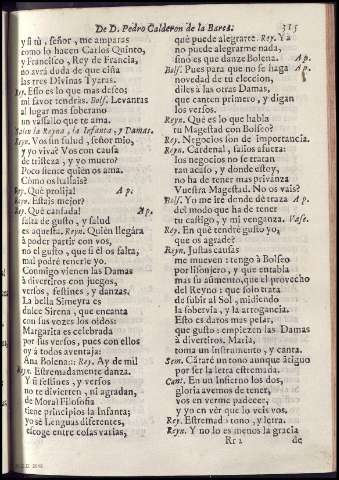 De D. Pedro Calderon de la Barca. 315
y si tù, señor, me amparas
como lo hacen Carlos Quinto,
y Francisco, Rey de Francia,
no avrà duda de que ciña
las tres Divinas Tyaras.
Rey. Esso es lo que mas deseo;
mi favor tendràs. Bols. Levantas
al lugar mas soberano
un vassallo que te ama.
Salen la Reyna, la Infanta, y Damas.
Reyn. Vos sin salud, señor mio,
y yo viva? Vos con causa
de tristeza, y yo muero?
Poco siente quien os ama.
Còmo os hallais?
Rey. Què prolija! Ap.
Reyn. Estais mejor?
Rey. Què cansada! Ap.
falta de gusto, y salud
es aquesta. Reyn. Quièn llegàra
à poder partir con vos,
no el gusto, que si èl os falta,
mal podrè tenerle yo.
Conmigo vienen las Damas
à divertiros con juegos,
versos, festines, y danzas.
La bella Simeyra es
dulce Sirena, que encanta
con sus vozes los oìdos:
Margarita es celebrada
por sus versos, pues con ellos
oy à todos aventaja:
Ana Bolena:: Rey. Ay de mi!
Reyn. Estremadamente danza.
Y si festines, y versos
no te divierten, ni agradan,
de Moral Filosofia
tiene principios la Infanta;
yo sè Lenguas diferentes,
escoge entre cosas varias,
què puede alegrarte. Rey. Ya
no puede alegrarme nada,
sino es que danze Bolena. Ap.
Bols. Pues para que no se haga Ap.
novedad de tu eleccion,
diles à las otras Damas,
que canten primero, y digan
los versos.
Reyn. Què es lo que habla
tu Magestad con Bolseo?
Rey. Negocios son de importancia.
Reyn. Cardenal, salios afuera:
los negocios no se tratan
tan acaso, y donde estoy,
no ha de tener mas privanza
Vuestra Magestad. No os vais?
Bols. Yo me irè donde dè traza Ap.
del modo que ha de tener
tu castigo, y mi venganza. Vase.
Rey. En què tendrè gusto yo,
que os agrade?
Reyn. Justas causas
me mueven: tengo à Bolseo
por lisonjero, y que entabla
mas su aumento, que el provecho
del Reyno: que solo trata
de subir al Sol, midiendo
la sobervia, y la arrogancia.
Esto es daros mas pesar,
que gusto: empiezen las Damas
à divertiros. Maria,
toma un instrumento, y canta.
Sem. Cantè un tono aunque antiguo
por ser la letra estremada.
Cant. En un infierno los dos,
gloria avemos de tener,
vos en verme padecer,
y yo en vèr que lo veis vos.
Rey. Estremado tono, y letra.
Reyn. Y no lo es menos la gracia
Rr 2 de